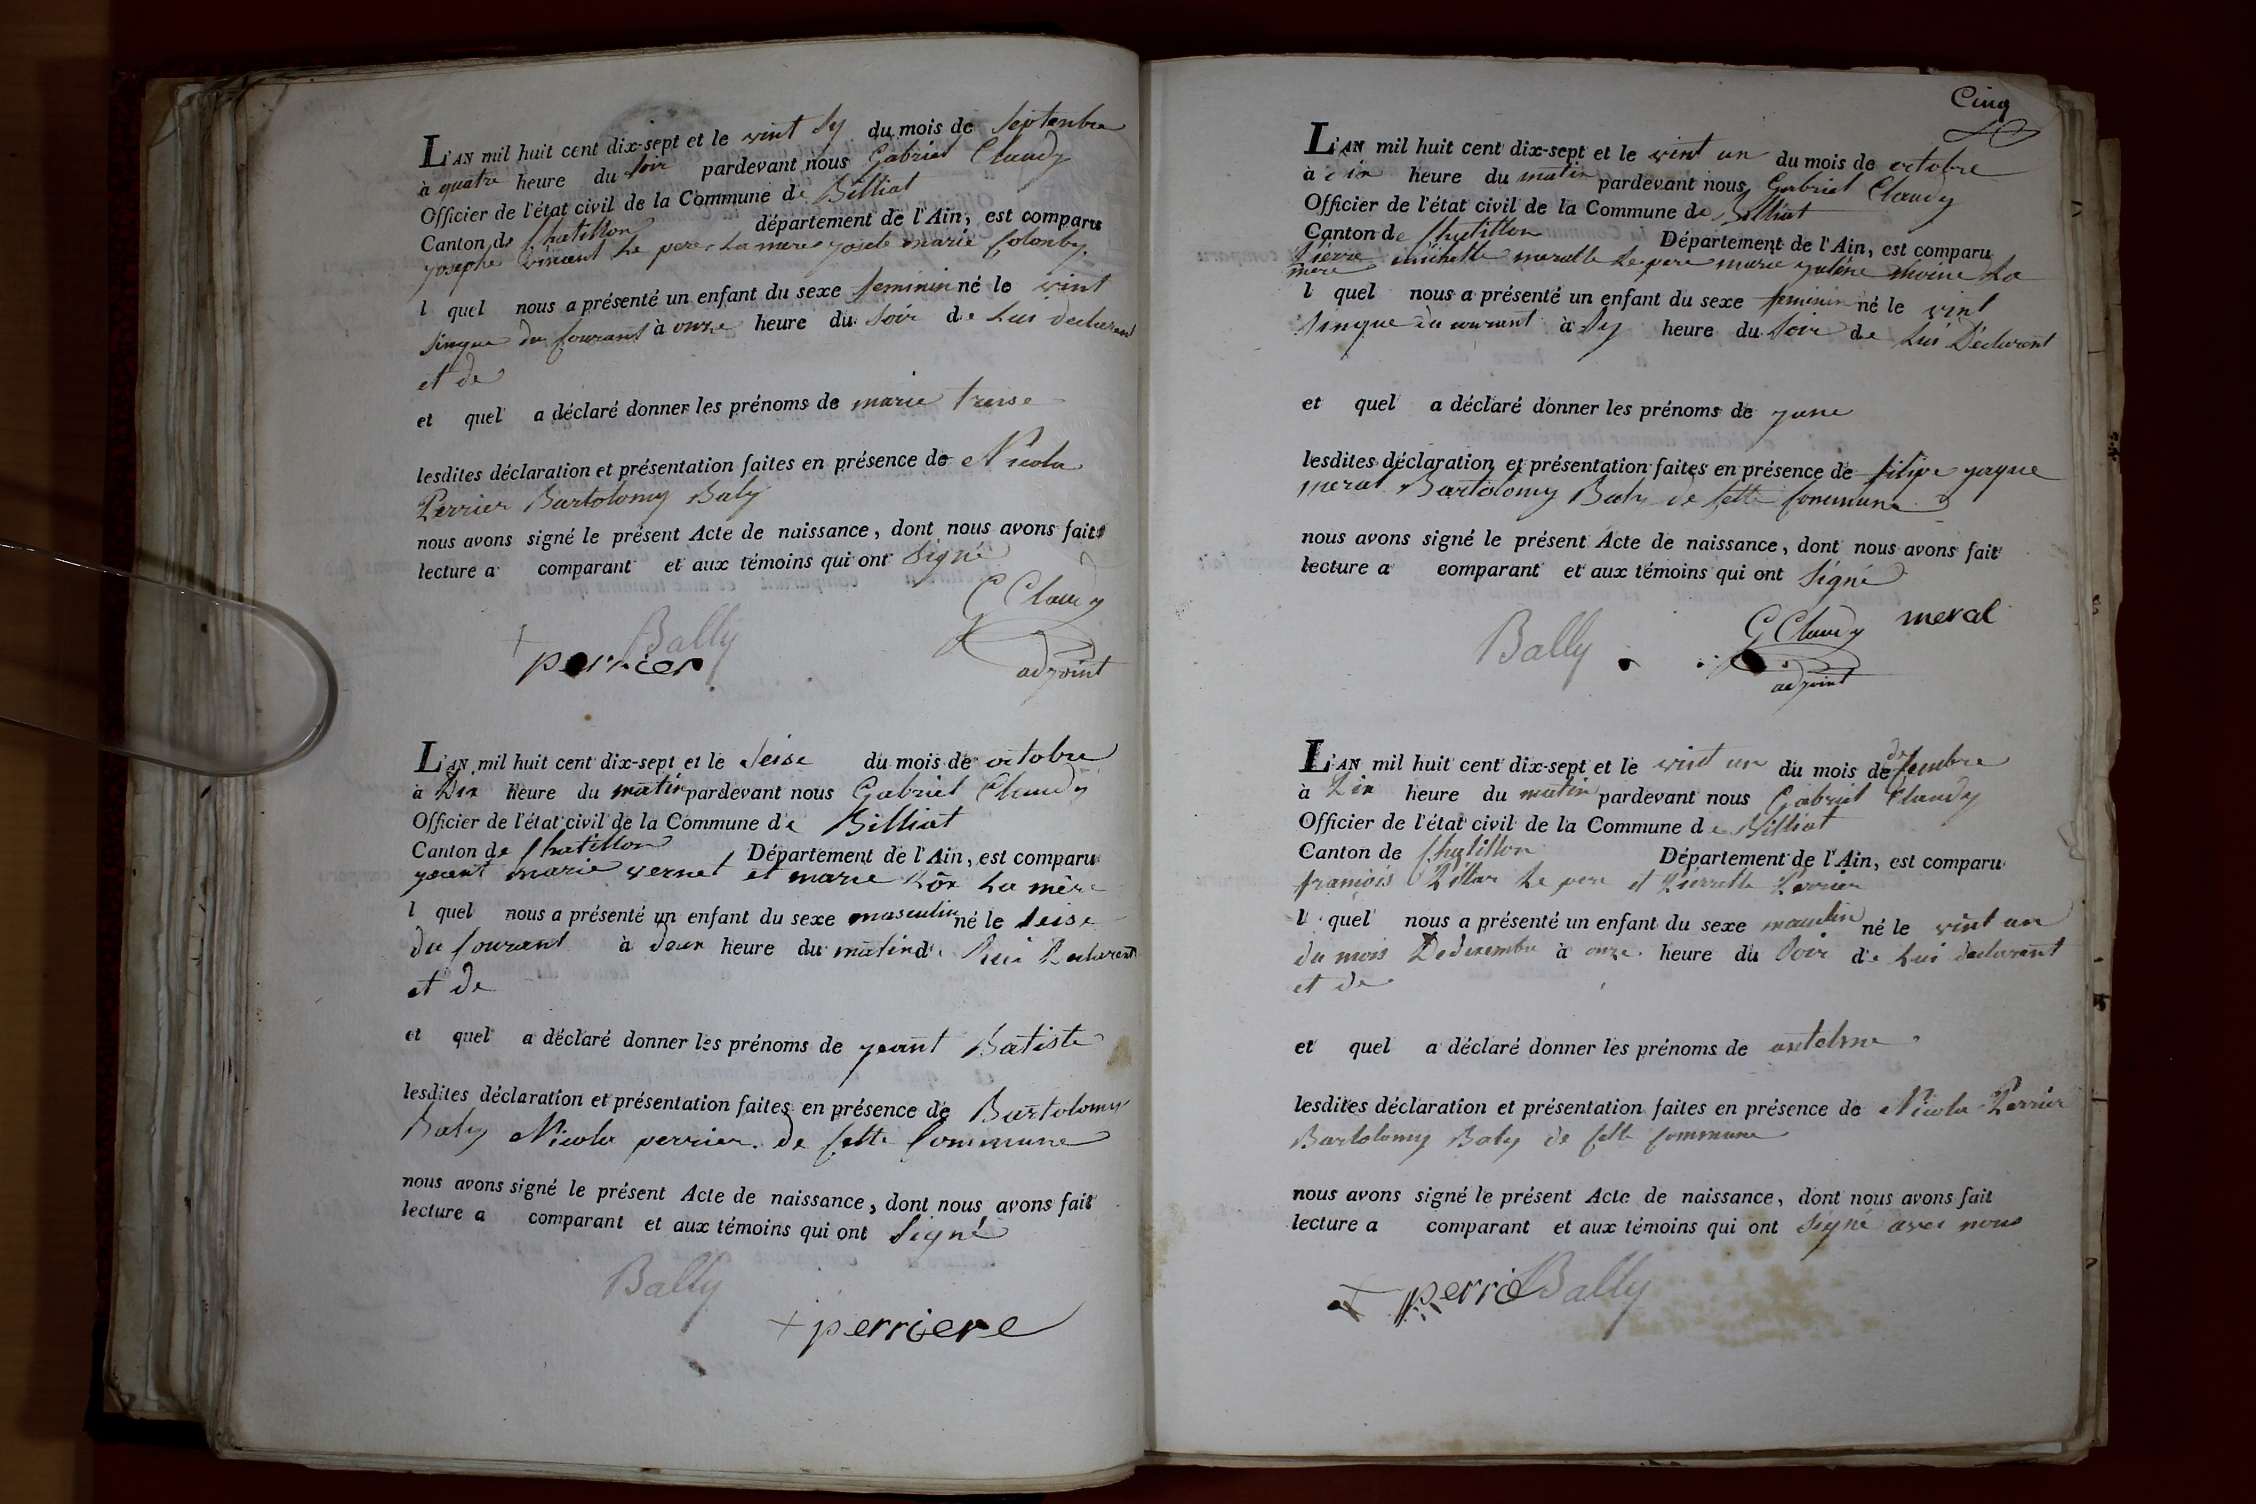 L'AN mil huit cent dix-sept et le vint sy du mois de septenbre
à quatre heure du soir pardevant nous Gabriel Claudy
Officier de l'état civil de la Commune de Billiat
Canton de Chatillon département de l'Ain, est comparu
yosephe vincent Le pere La mere marie Colonby
l quel nous a présenté un enfant du sexe feminin né le vint
sinque du courant à onze heure du soir de Lui declarant
et de
et quel a déclaré donner les prénoms de marie trese
lesdites déclaration et présentation faites en présence de Nicola
Perrier Bartolomy Baly
nous avons signé le présent Acte de naissance, dont nous avons fait
lecture a comparant et aux témoins qui ont signé
G Claudy
Bally
+ perrier
adjoint
L'AN mil huit cent dix-sept et le seise du mois de octobre
à Dix heure du matin pardevant nous Gabriel Claudy
Officier de l'état civil de la Commune de Billiat
Canton de Chatillon Département de l'Ain, est comparu
yeant marie vernet et marie La mère
l quel nous a présenté un enfant du sexe masculin né le seise
du courant à deux heure du matin de Lui Declarent
et de
et quel a déclaré donner les prénoms de yeant Batiste
lesdites déclaration et présentation faites en présence de Bartolomy
Baly Nicola perrier de sette Commune
nous avons signé le présent Acte de naissance, dont nous avons fait
lecture a comparant et aux témoins qui ont signé
Bally
+ perriere
Cinq
L'AN mil huit cent dix-sept et le vint un du mois de octobre
à dix heure du matin pardevant nous Gabriel Claudy
Officier de l'état civil de la Commune de Billiat
Canton de Chatillon Département de l'Ain, est comparu
Pierre meralle Le pere marie moine La
mere
l quel nous a présenté un enfant du sexe feminin né le vint
sinque du courant à sy heure du soir de Lui Déclarant
et quel a déclaré donner les prénoms de yane
lesdites déclaration et présentation faites en présence de filipe yaque
meral Bartolomy Baly de sette commune
nous avons signé le présent Acte de naissance, dont nous avons fait
lecture a comparant et aux témoins qui ont signé
G Claudy meral
Bally
adjoint
L'AN mil huit cent dix-sept et le vint un du mois de desenbre
à Dix heure du matin pardevant nous Gabriel Claudy
Officier de l'état civil de la Commune de Billiat
Canton de Chatillon Département de l'Ain, est comparu
françois Le pere et Pierrette Perrier
l quel nous a présenté un enfant du sexe masculin né le vint un
du mois De desenbre à onze heure du soir de Lui declarant
et de
et quel a déclaré donner les prénoms de antelme
lesdites déclaration et présentation faites en présence de Nicola Perrier
Bartolomy Baly de sette commune
nous avons signé le présent Acte de naissance, dont nous avons fait
lecture a comparant et aux témoins qui ont signé avec nous
+ perrie Bally